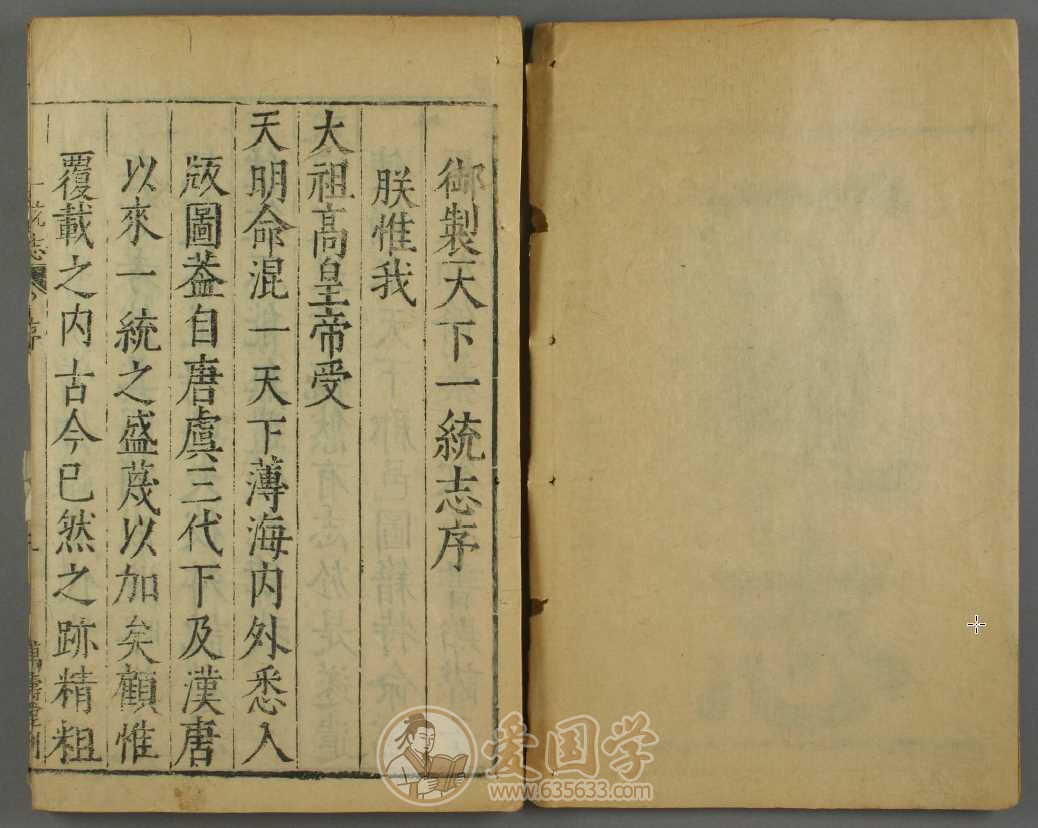 御製天下一統志序
朕惟我
太祖高皇帝受
天明命混一天下薄海内外悉入
版圖葢自唐虞三代下及漢唐
以來一統之盛蔑以加矣顧惟
覆載之内古今已然之跡精粗
一統志
序
萬壽堂刊
爱国学
www.635633.com